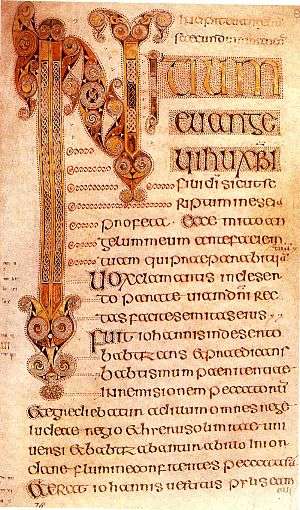 INITIUM
euange
lii ihu xpi
fili di sicut sc
riptum in esaia
profeta Ecce mitto an
gelum meum ante faciem
tuam qui praeparabit
Uox clamantis in deser
to parate uiam dni rec
tas facite semitas eius
Fuit iohannis in deserto
babtizans et praedicans
babtismum paenitentiae
in remisionem peccatorum
Et egrediebatur ad illum omnes
iudeae regio et hierusolimitae uni
uersi et babtizabantur ab illo in ior
dane flumine confitentes peccata sua
Et erat iohannis uestitus pylis cam